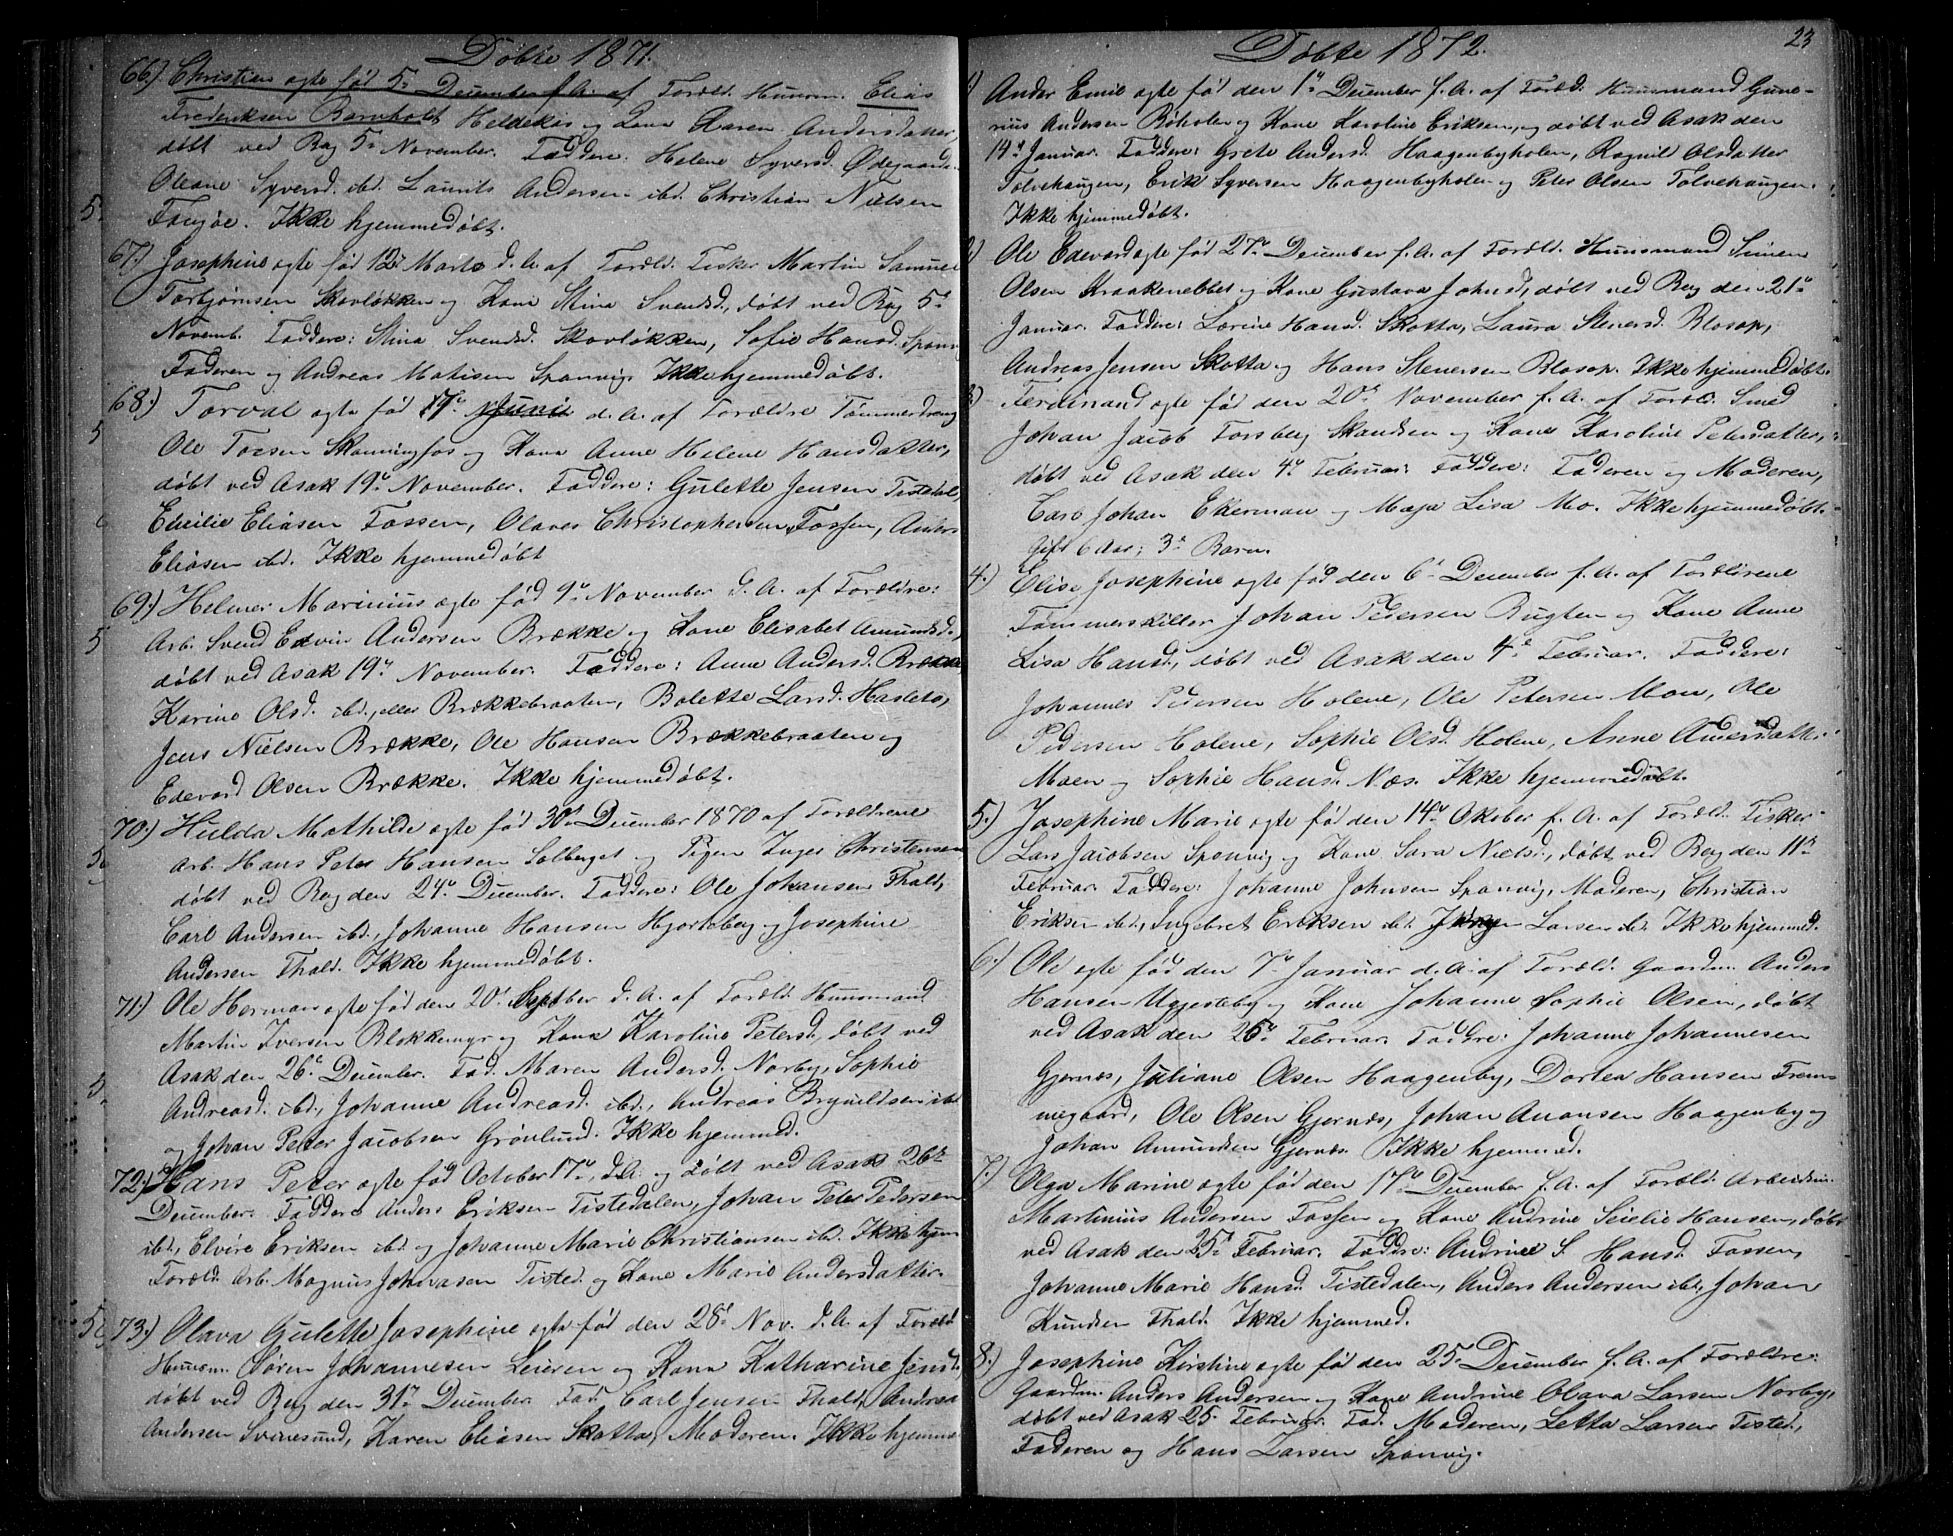 Døbte 1871.
66.) Christian ægte fød 5te December f. A. af Foræld. Huusm. Elias
Frederiksen Bornholt Heldekis og Kone Karen Andersdatter,
døbt ved Berg 5te November. Faddere: Helene Syversd. Ødegaard
Oleane Syversd. ibd. Laurits Andersen ibd. Christian Nielsen
Ikke hjemmedøbt.
67.) Josephine ægte fød 12te Marts d. A. af Foræld. Fisker Martin Samuel
Torbjørnsen Skovløkken og Kone Stina Svendsd., døbt ved Berg 5te
Novemb. Faddere: Stina Svendsd. Skovløkken, Sofie Hansd. Sponvig
Faderen og Andreas Mathisen Sponvig. Ikke hjemmedøbt.
68.) Torval ægte fød 17de Juni d. A. af Forældre Tømmerdreng
Ole Torsen Skonningfos og Kone Anne Helene Hansdatter,
døbt ved Asak 19de November. Faddere: Gulette Jensen Tistedal,
Eliasen Fossen, Olaves Christophersen Fossen, Anders
Eliasen ibd. Ikke hjemmedøbt
69.) Helmer Marinius ægte fød 9de November d. A. af Forældre:
Arb. Svend Edvin Andersen Brække og Kone Elisabet Amundsd.,
døbt ved Asak 19de November. Faddere: Anne Andersd. Brække,
Karine Olsd. ibd., eller Brækkebraaten, Bolette Larsd. Hasleto,
Jens Nielsen Brække, Ole Hansen Brækkebraaten og
Edevard Olsen Brække. Ikke hjemmedøbt.
70.) Hulda Mathilde ægte fød 30te December 1870 af Forældrene
Arb. Hans Peter Hansen Solberget og Pigen Inger Christensen
døbt ved Berg den 24de December. Faddere: Ole Johansen Thald,
Carl Andersen ibd., Johanne Hansen Hjorteberg og Josephine
Andersen Thald. Ikke hjemmedøbt.
71.) Ole Herman ægte fød den 20de Septbr d. A. af Foræld. Huusmand
Martin Iversen Blokkemyr og Kone Karoline Petersd., døbt ved
Asak den 26de December. Fad. Maren Andersd. Norby, Sophie
Andreasd. ibd., Johanne Andreasd. ibd., Andreas Brynildsen ibd.
og Johan Peter Jacobsen Grønlund. Ikke hjemmed.
72.) Hans Peter ægte fød October 17de, d. A. og døbt ved Asak 26de
December. Faddere Anders Eriksen Tistedalen, Johan Peter Pedersen
ibd., Elvire Eriksen ibd. og Johanne Marie Christiansen ibd. Ikke hjem
Foræld. Arb. Magnus Johnasen Tisted. og Kone Marie Andersdatter.
73.) Olava Gulette Josephine ægte fød den 28de Nov. d. A. af Foræld.
Huusm. Søren Johannesen Leieren og Kone Katharine Jensd.,
døbt ved Berg den 31te December. Fad. Carl Jensen Thald, Anders
Andersen Svinesund, Karen Eliasen Skotta, Moderen. Ikke hjemme
23
Døbte 1872.
1) Ander Emil ægte fød den 1te December f. A. af Foræld. Huusmand Gune-
rius Andersen Bøholen og Kone Karoline Eriksen, og døbt ved Asak den
14de Januar. Faddere: Grete Andersd. Haagenbyholen, Ragnil Olsdatter
Tolvehaugen, Erik Syversen Haagenbyholen og Peter Olsen Tolvehaugen.
Ikke hjemmedøbt.
2) Ole Edevard ægte fød 27de December f. A. af Foræld. Huusmand Simen
Olsen Kraakenebbet og Kone Gustava Johnsd, døbt ved Berg den 21de
Januar. Faddere: Lorine Hansd. Skotta, Laura Stenersd. Blosop,
Andreas Jensen Skotta og Hans Stenersen Blosop. Ikke hjemmedøbt.
3) Ferdinand ægte fød den 20de November f. A. af Foræld. Smed
Johan Jacob Forsberg Skandsen og Kone Karoline Petersdatter,
døbt ved Asak den 4de Februar: Faddere: Faderen og Moderen,
Carl Johan Ekerman og Maja Lisa Mo. Ikke hjemmedøbt.
Gift 6 Aar; 3de Barn.
4.) Elise Josephine ægte fød den 6te December f. A. af Forældrene
Tømmerskiller Johan Pedersen Rugten og Kone Anne
Lisa Hansd., døbt ved Asak den 4de Februar. Faddere:
Johannes Pedersen Holene, Ole Petersen Moen, Ole
Pedersen Holene, Sophie Olsd. Holene, Anne Andersdatter
Moen og Sophie Hansd. Næs. Ikke hjemmedøbt.
5.) Josephine Marie ægte fød den 14de Oktober f. A. af Foræld. Fisker
Lars Jacobsen Sponvig og Kone Sara Nielsd., døbt ved Berg den 11te
Februar. Faddere: Johanne Johnsen Sponvig, Moderen, Christian
Eriksen ibd., Ingebret Eriksen ibd. Jørgen Larsen ibd. Ikke hjemmed.
6.) Ole ægte fød den 7de Januar d. A. af Foræld. Gaardm. Anders
Hansen Uggesteby og Kone Johanne Sophie Olsen, døbt
ved Asak den 25de Februar. Faddere: Johanne Johannesen
Gjernes, Juliane Olsen Haagenby, Dortea Hansen Frem-
megaard, Ole Olsen Gjernæs, Johan Anonsen Haagenby og
Johan Amundsen Gjernæs. Ikke hjemmed.
7.) Olga Marine ægte fød den 17de December f. A. af Foræld. Arbeidsm.
Martinius Andersen Fossen og Kone Andrine Seielie Hansen, døbt
ved Asak den 25de Februar. Faddere: Andrine S. Hansd. Fossen,
Johanne Marie Hansd. Tistedalen, Anders Andersen ibd., Johan
Knudsen Thald. Ikke hjemmed.
8.) Josephine Kirstine ægte fød den 25de December f. A. af Forældre:
Gaardm. Anders Andersen og Kone Andrine Olava Larsen Norby,
døbt ved Asak 25de Februar. Fad. Moderen, Letta Larsen Tisted.,
Faderen og Hans Larsen Sponvig.